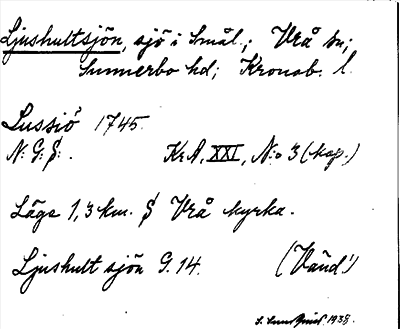 Ljushultsjön, sjö i Smål.; Vrå sn;
Sunnerbo hd; Kronob. l.
Lussiö 1745.
N: G: S: .
K.A. XXI, N:o 3 (kop.)
Läge 1,3 km. S Vrå kyrka.
Ljushult sjön G. 14.
(Vänd!)
1938.